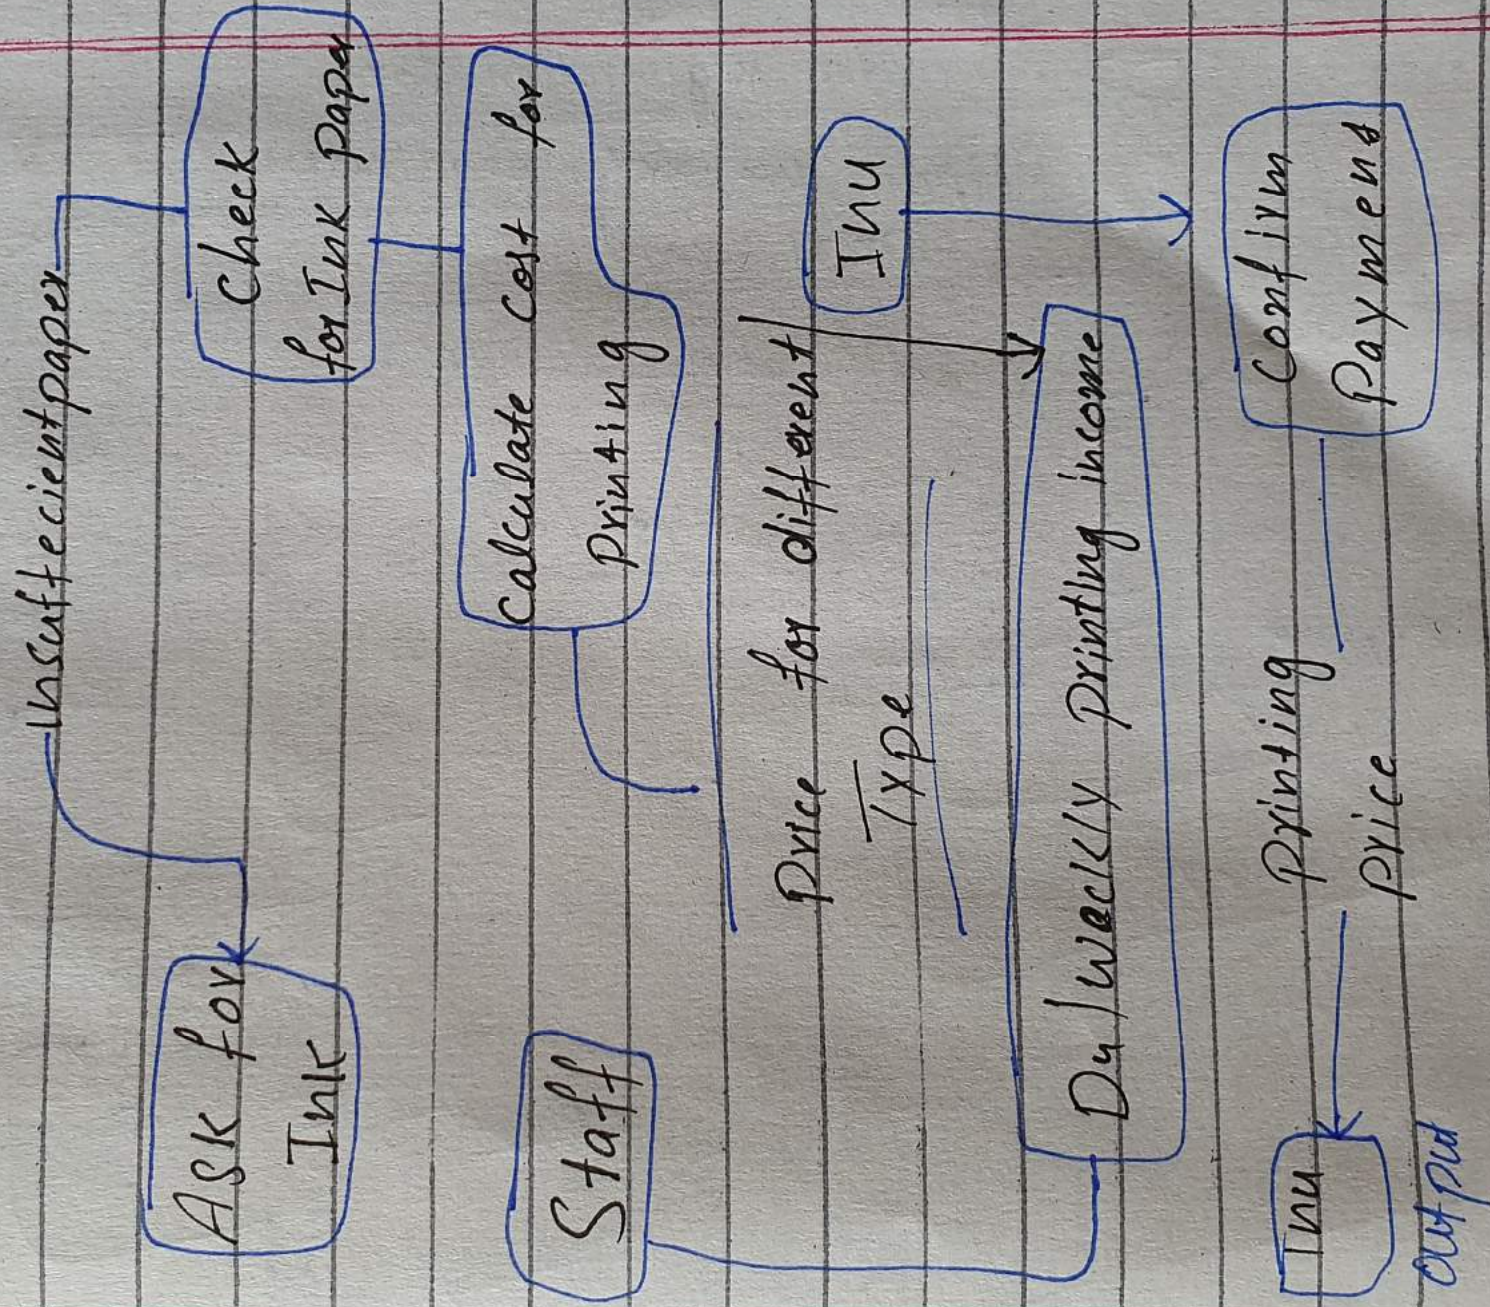 Insuffecient paper
Check
for Ink paper
Ask for
Ink
Calculate cost for
Printing
Staff
Inu
Price for different
Type
Du/Weekly printing income
Confirm
Payment
Printing
Price
Inu
Output